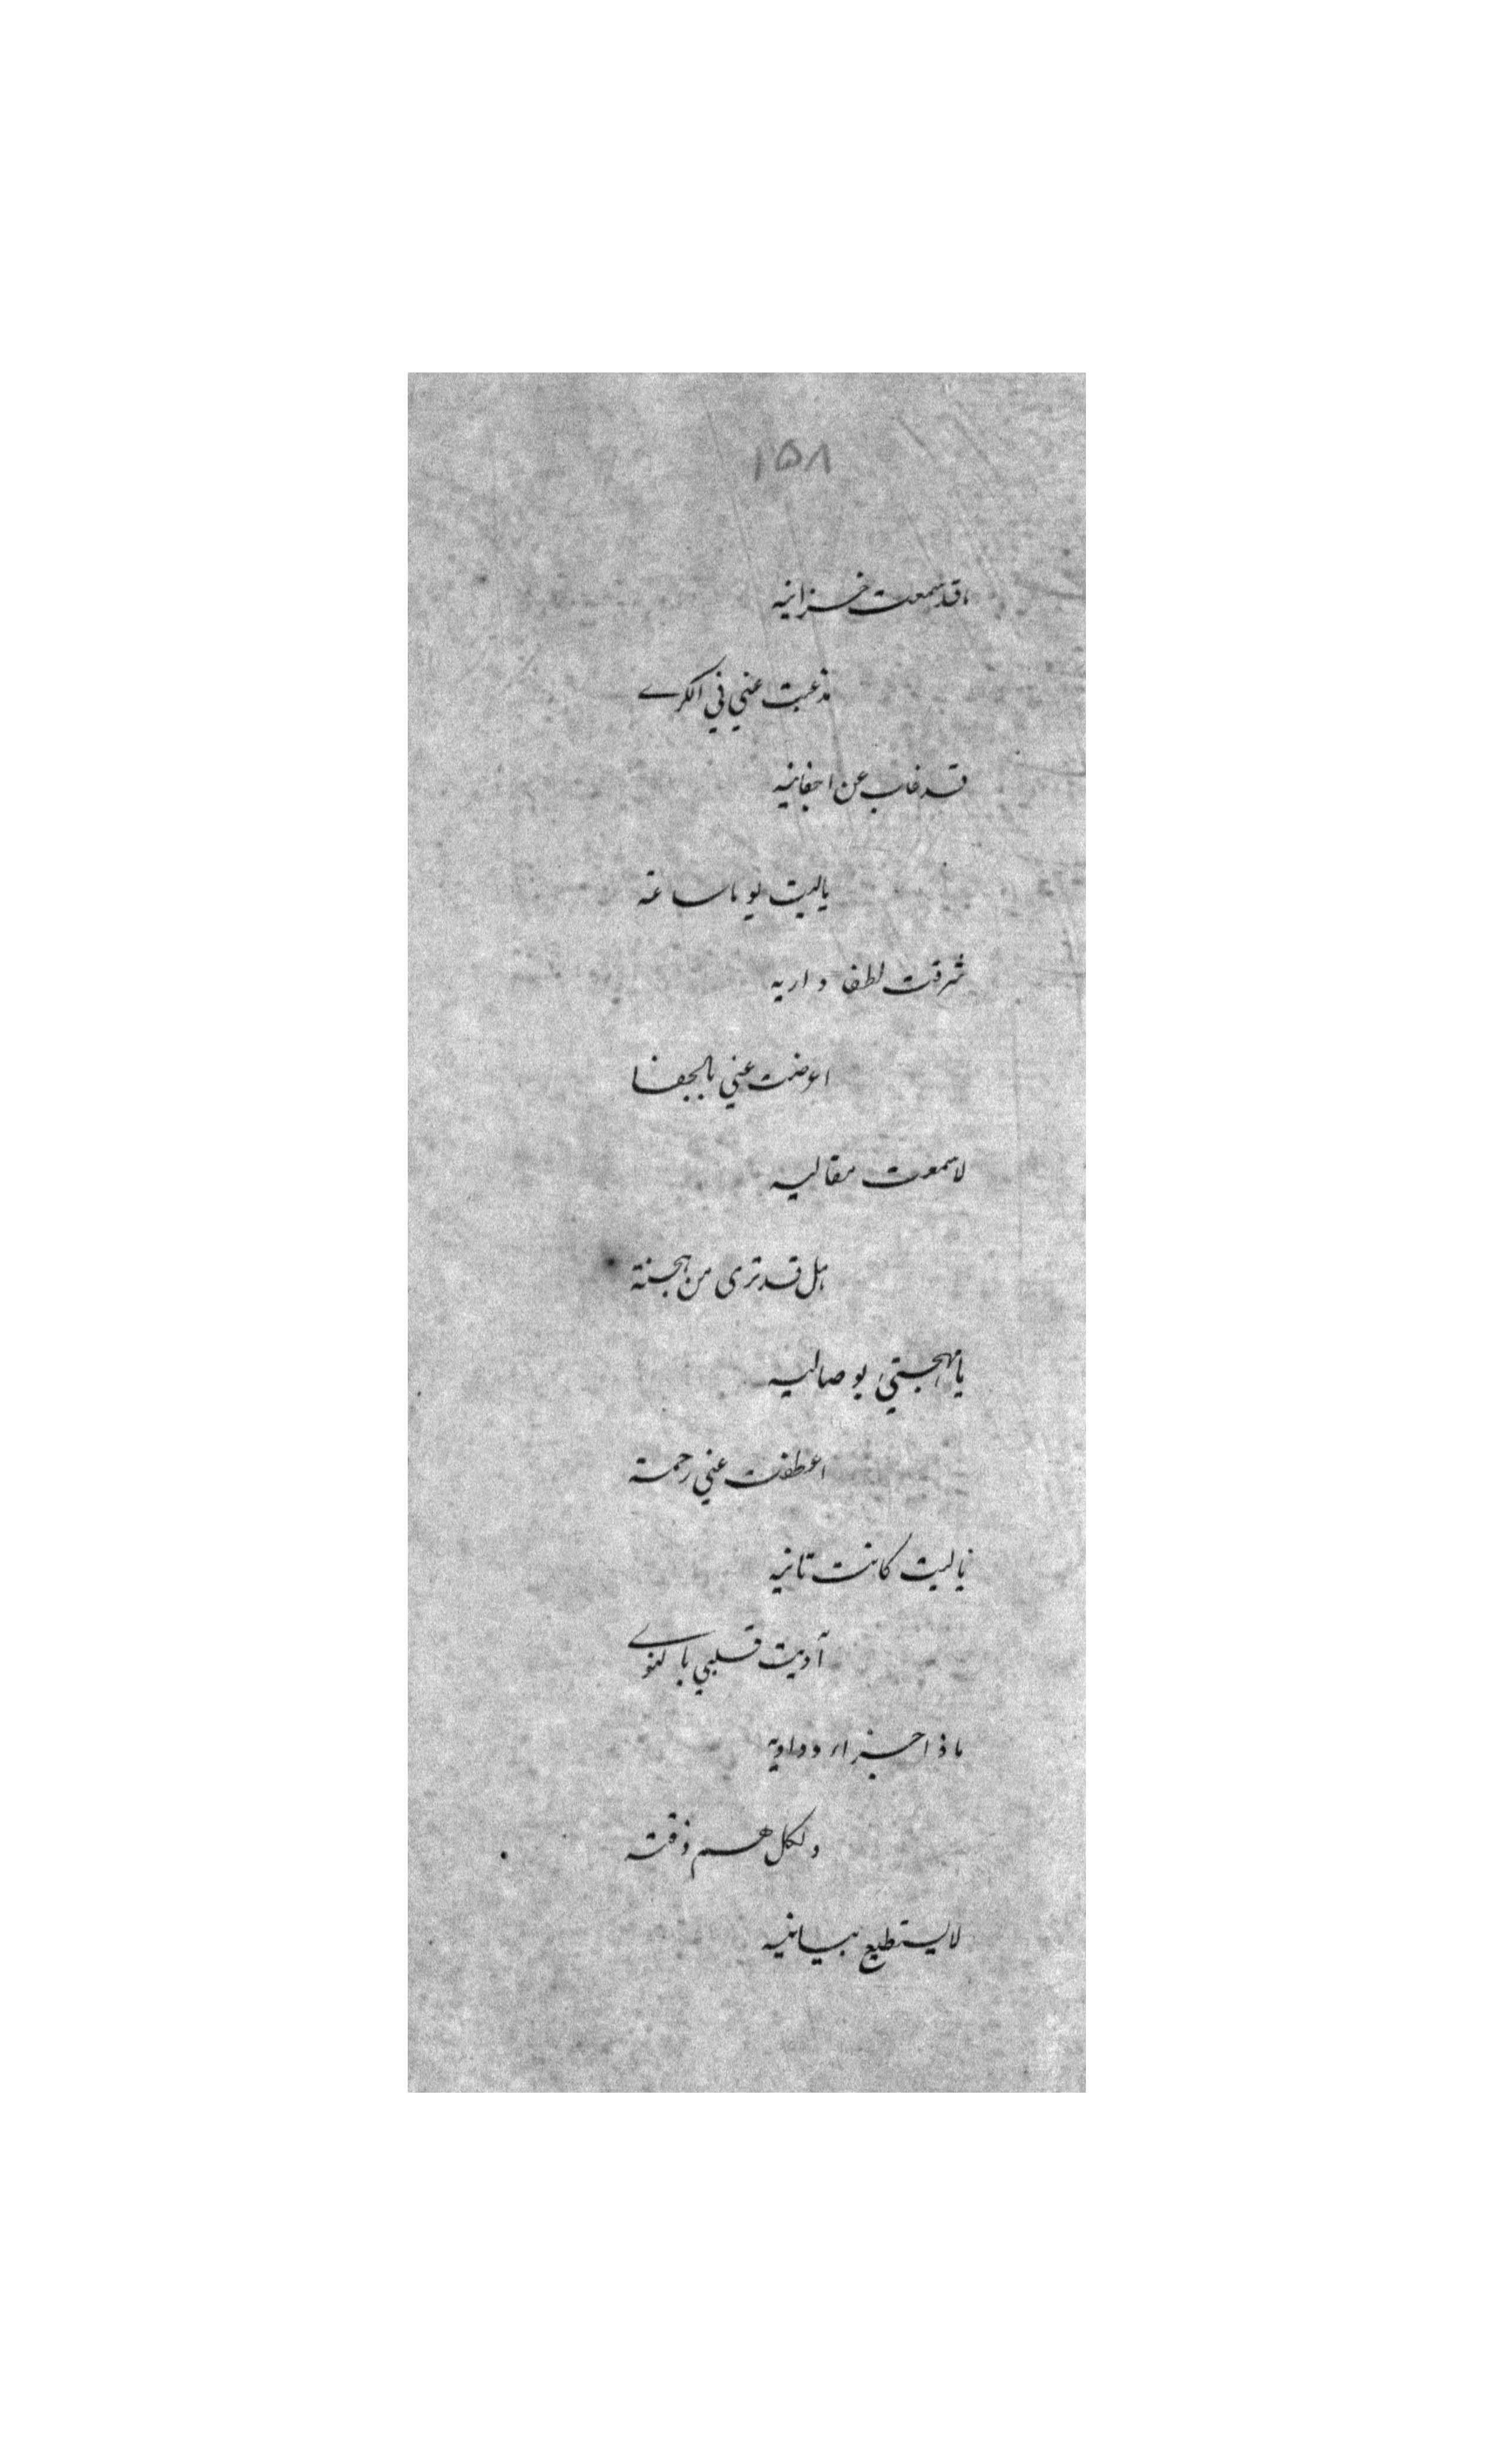 ١٥٨
ما قد سمعت خزانيه
مذ غبت عني في الكرے
قد غاب عن اجفانيه
ياليت يوما ساعة
شرفت لطفا داريه
اعرضت عني بالجفا
لا سمعت مقاليه
هل قد ترى من هجنة
يا مهجتي بوصاليه
اعطفت عني رحمة
ياليت كانت ثانيه
آذيت قلبي بالنوے
ماذا جزاء وداديه
ولكل هم ذقته
لا يستطيع بيانيه